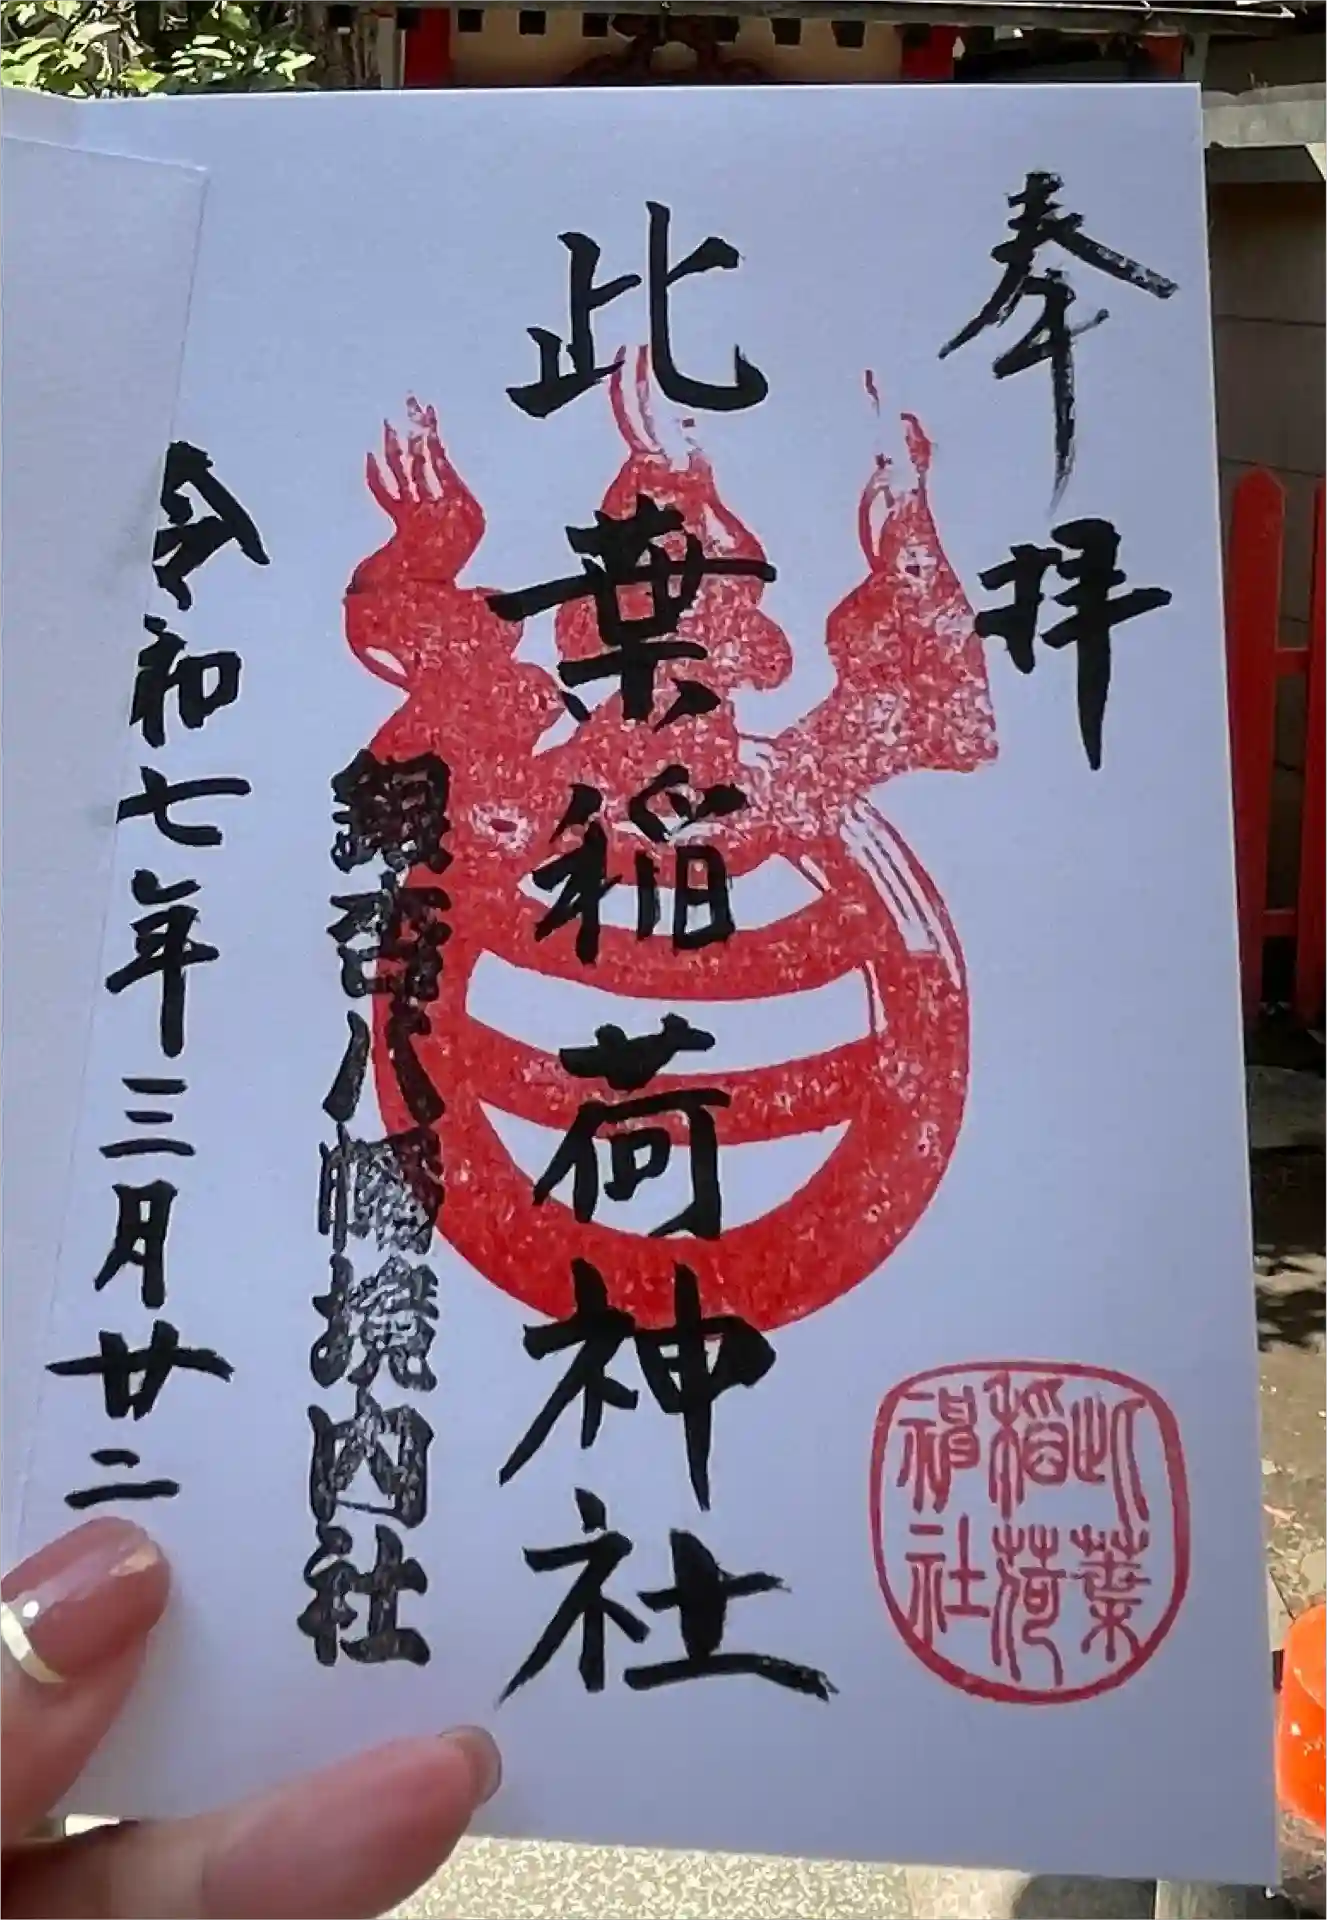 奉拝
此葉稲荷神社
銀杏八幡境内社
令和七年三月廿二
此葉
稲荷
神社